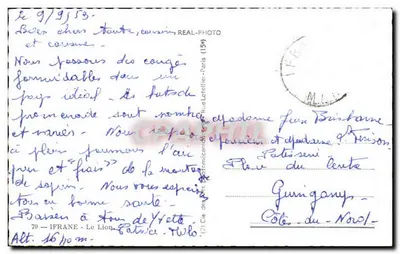 le 9/9/53.
Biens chers tante, cousins
et cousine.
REAL-PHOTO
Nous passons des congés
formidables dans un
pays idéal. Les buts de
promenade sont nombreux
et variés. Nous
à plein poumons l'air
pur et "frais" de la montagne
de sapins. Nous vous espérons
tous en bonne santé.
Baisers à tous de Yvette
Patrice
79 - IFRANE - Le Lion
Alt. 1650 m
Paris (15e)
Madame
et Madame
Pâtisserie
Place du Centre
Guingamp
Côtes-du-Nord